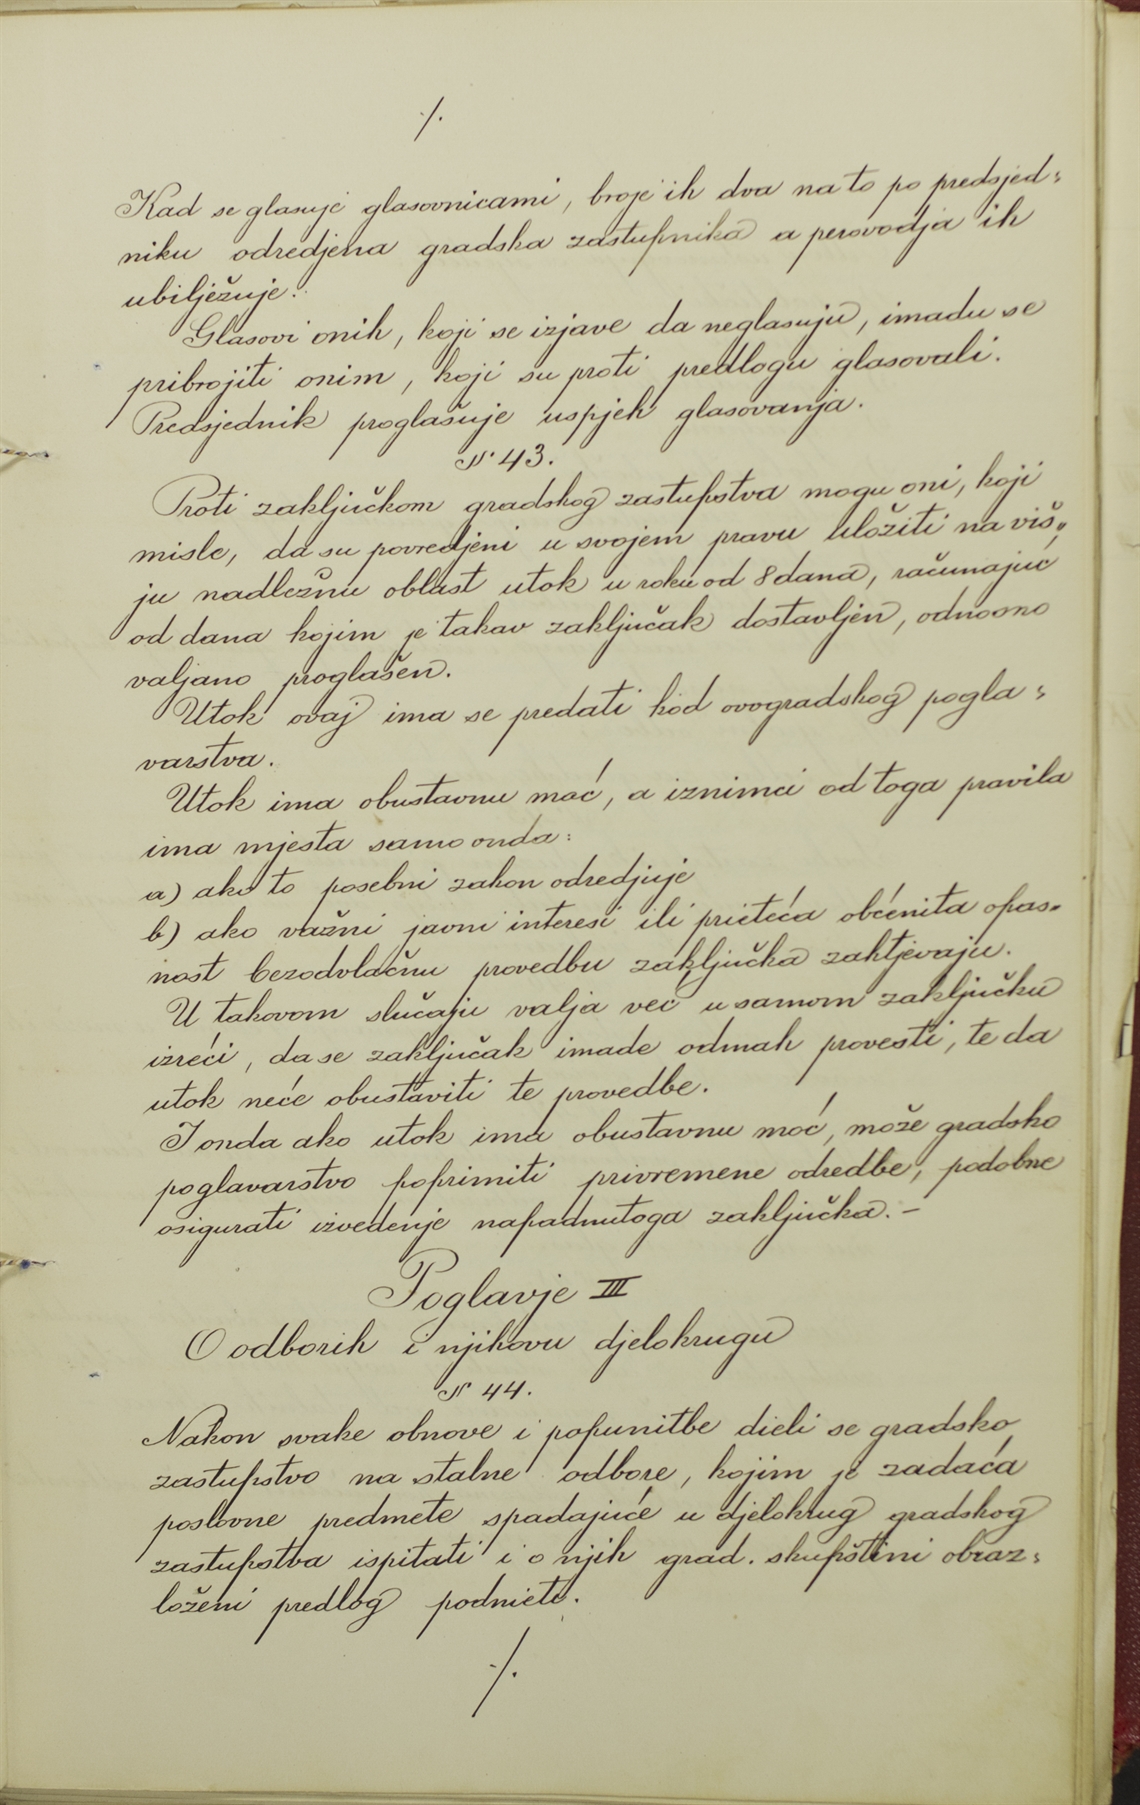 ./.
Kad se glasuje glasovnicami, broje ih dva na to po predsjed=
niku odredjena gradska zastupnika a perovodja ih
ubilježuje.
Glasovi onih, koji se izjave da neglasuju, imadu se
pribrojiti onim, koji su proti predlogu glasovali.
Predsjednik proglašuje uspjeh glasovanja.
№ 43.
Proti zaključkom gradskog zastupstva mogu oni, koji
misle, da su povredjeni u svojem pravu uložiti na viš=
ju nadležnu oblast utok u roku od 8 dana, računajuć
od dana kojim je takav zaključak dostavljen, odnosno
valjano proglašen.
Utok ovaj ima se predati kod ovogradskog pogla=
varstva.
Utok ima obustavnu moć, a iznimci od toga pravila
ima mjesta samo onda:
a) ako to posebni zakon odredjuje
b) ako važni javni interesi ili prieteća obćenita opas=
nost bezodvlačnu provedbu zaključka zahtjevaju.
U takovom slučaju valja već u samom zaključku
izreći, da se zaključak imade odmah provesti, te da
utok neće obustaviti te provedbe.
I onda ako utok ima obustavnu moć, može gradsko
poglavarstvo poprimiti privremene odredbe, podobne
osigurati izvedenje napadnutoga zaključka. –
Poglavje III
O odborih i njihovu djelokrugu
№ 44.
Nakon svake obnove i popunitbe dieli se gradsko
zastupstvo na stalne odbore, kojim je zadaća
poslovne predmete spadajuće u djelokrug gradskog
zastupstva ispitati i o njih grad. skupštini obraz=
loženi predlog podnieti.
./.